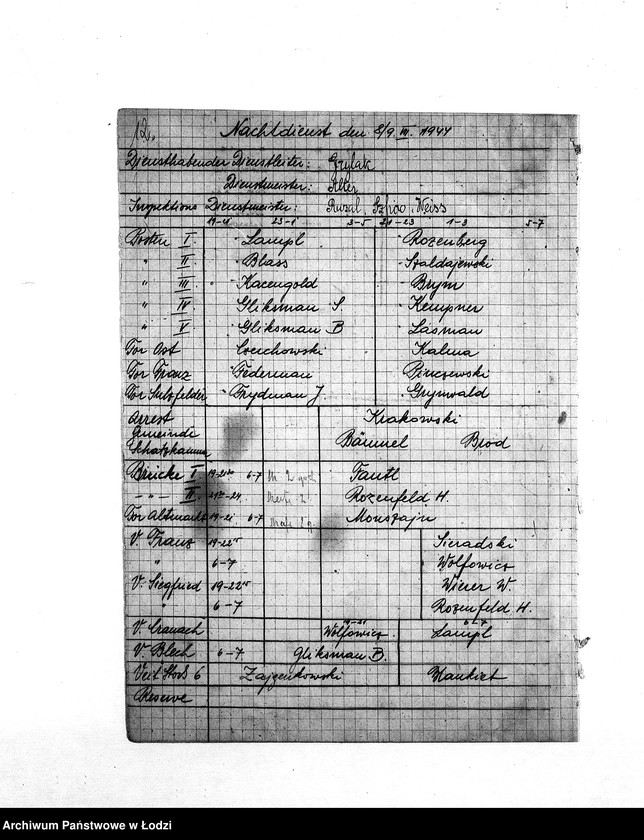 12.
Nachtdienst den 8/9 III. 1944
Diensthabender Dienstleiter: Grylak
Dienstmeister: Alter
Inspektions Dienstmeister: Ruzal, Szpiro, Weiss
19-21 23-1 3-5 21-23 1-3 5-7
Posten I. Lampl Rozenberg
" II Blass Szaldajewski
" III Kacengold Brym
" IV Gliksman S. Kempner
" V Gliksman B Lasman
Tor Ost Czechowski Kalma
Tor Franz Federman Pinczewski
Tor Sulzfelder Frydman J. Grynwald
Arrest Krakowski
Gemeinde Bäumel Brod
Schatzkammer
Brücke I 6-7 Tautl
" II Rozenfeld H.
Tor Altmarkt 19-21 6-7 Monszajn
V. Franz 19-22 Sieradski
" 6-7 Wolfowicz
V. Siegfried 19-22 Wiener W.
" 6-7 Rozenfeld H.
19-21 6-7
V. Cranach Wolfowicz Lampl
V. Blech 6-7 Gliksman B.
Veit Stoß 6 Zajzenkowski Blankiet
Reserve
Archiwum Państwowe w Łodzi